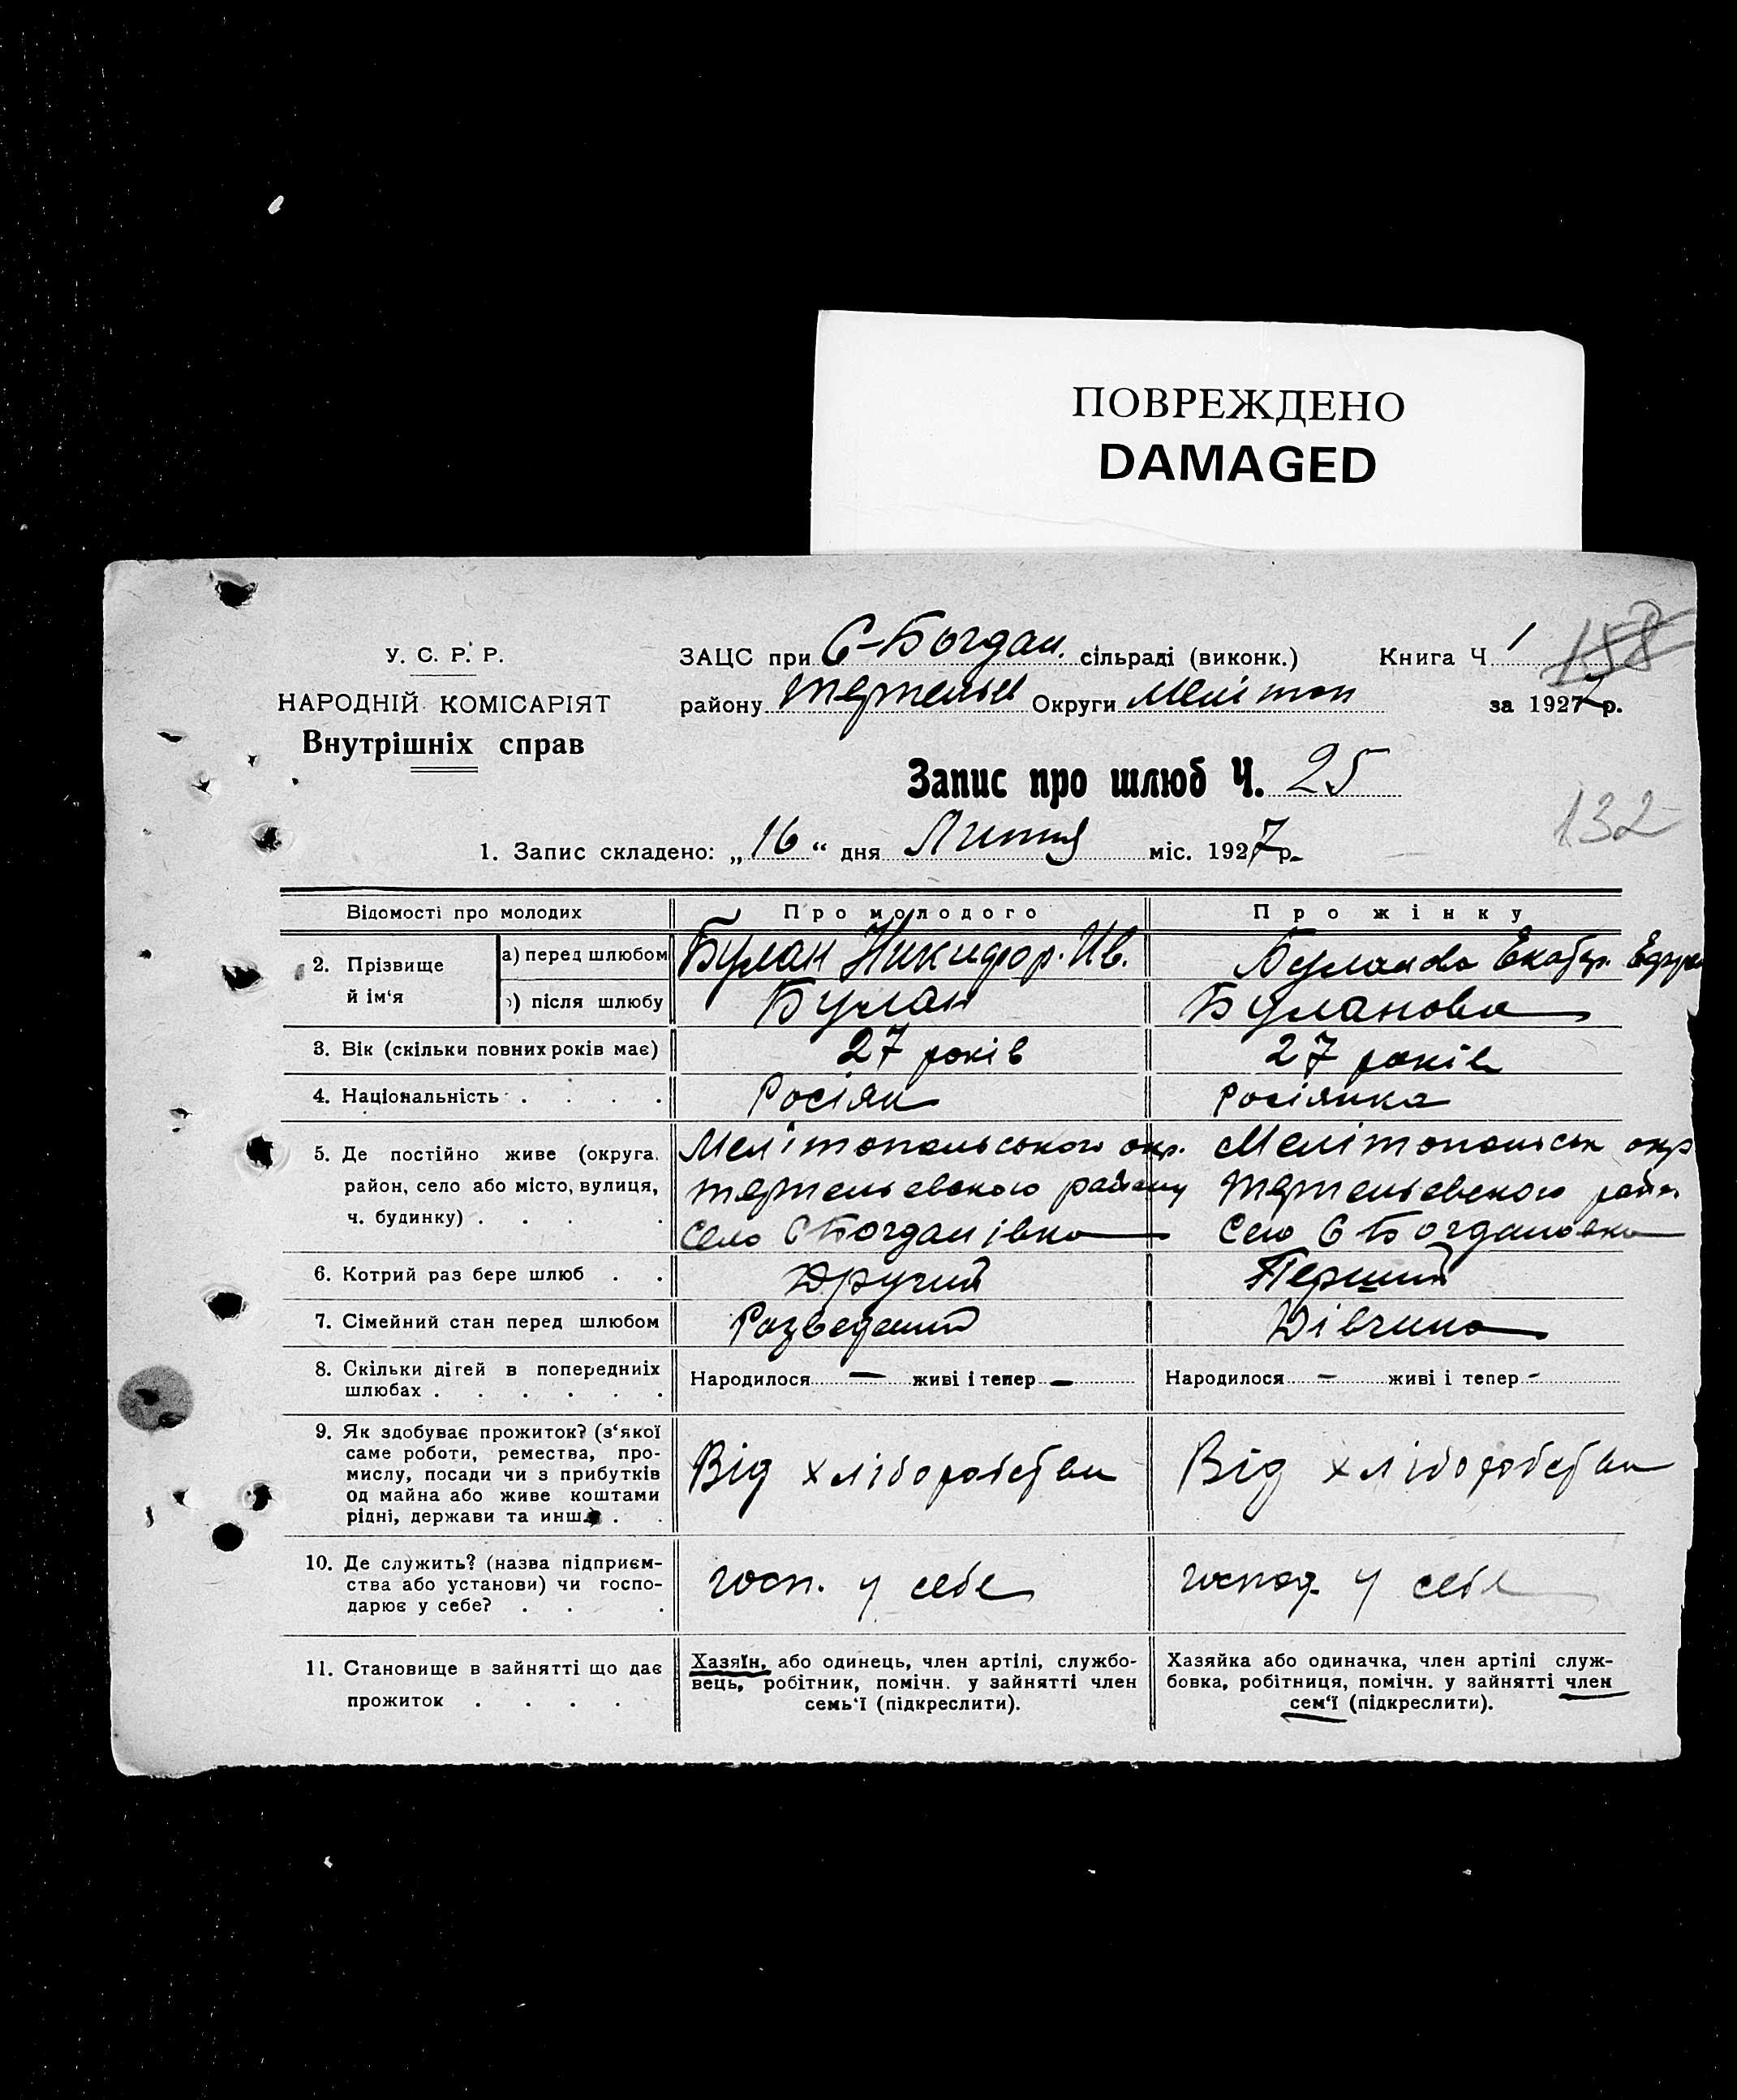 ПОВРЕЖДЕНО
DAMAGED
У. С. Р. Р.
НАРОДНІЙ КОМІСАРІЯТ
Внутрішніх справ
ЗАЦС при С-Богдан. сільраді (виконк.) Книга Ч 1 158
району Тертельев Округи Мелітоп за 1927 р.
Запис про шлюб Ч. 25
132
1. Запис складено: „16“ дня Липня міс. 1927 р.
Відомості про молодих Про молодого Про жінку
2. Прізвище й ім‘я
а) перед шлюбом Булан Никифор. Ив. Буланова Екатер.
б) після шлюбу Булан Буланова
3. Вік (скільки повних років має) 27 років 27 років
4. Національність . . . . Росіян Росіянка
5. Де постійно живе (округа,
район, село або місто, вулиця,
ч. будинку) . . . .
Мелітопольського окр.
тертельевского району
село С Богданівка
Мелітопольськ окр
тертельевского район
Село С Богдановка
6. Котрий раз бере шлюб . . Другий Перший
7. Сімейний стан перед шлюбом Разведений Дівчина
8. Скільки дітей в попередниіх
шлюбах . . . . . .
Народилося — живі і тепер — Народилося — живі і тепер -
9. Як здобуває прожиток? (з‘якої
саме роботи, ремества, про-
мислу, посади чи з прибутків
од майна або живе коштами
рідні, держави та инш. . .
Від хліборобства
Від хліборобства
10. Де служить? (назва підприєм-
ства або установи) чи госпо-
дарює у себе? . . .
госп. у себе
господ. у себе
11. Становище в зайнятті що дає
прожиток . . . .
Хазяїн, або одинець, член артілі, службо-
вець, робітник, помічн. у зайнятті член
семь‘ї (підкреслити).
Хазяйка або одиначка, член артілі служ-
бовка, робітниця, помічн. у зайнятті член
сем‘ї (підкреслити).